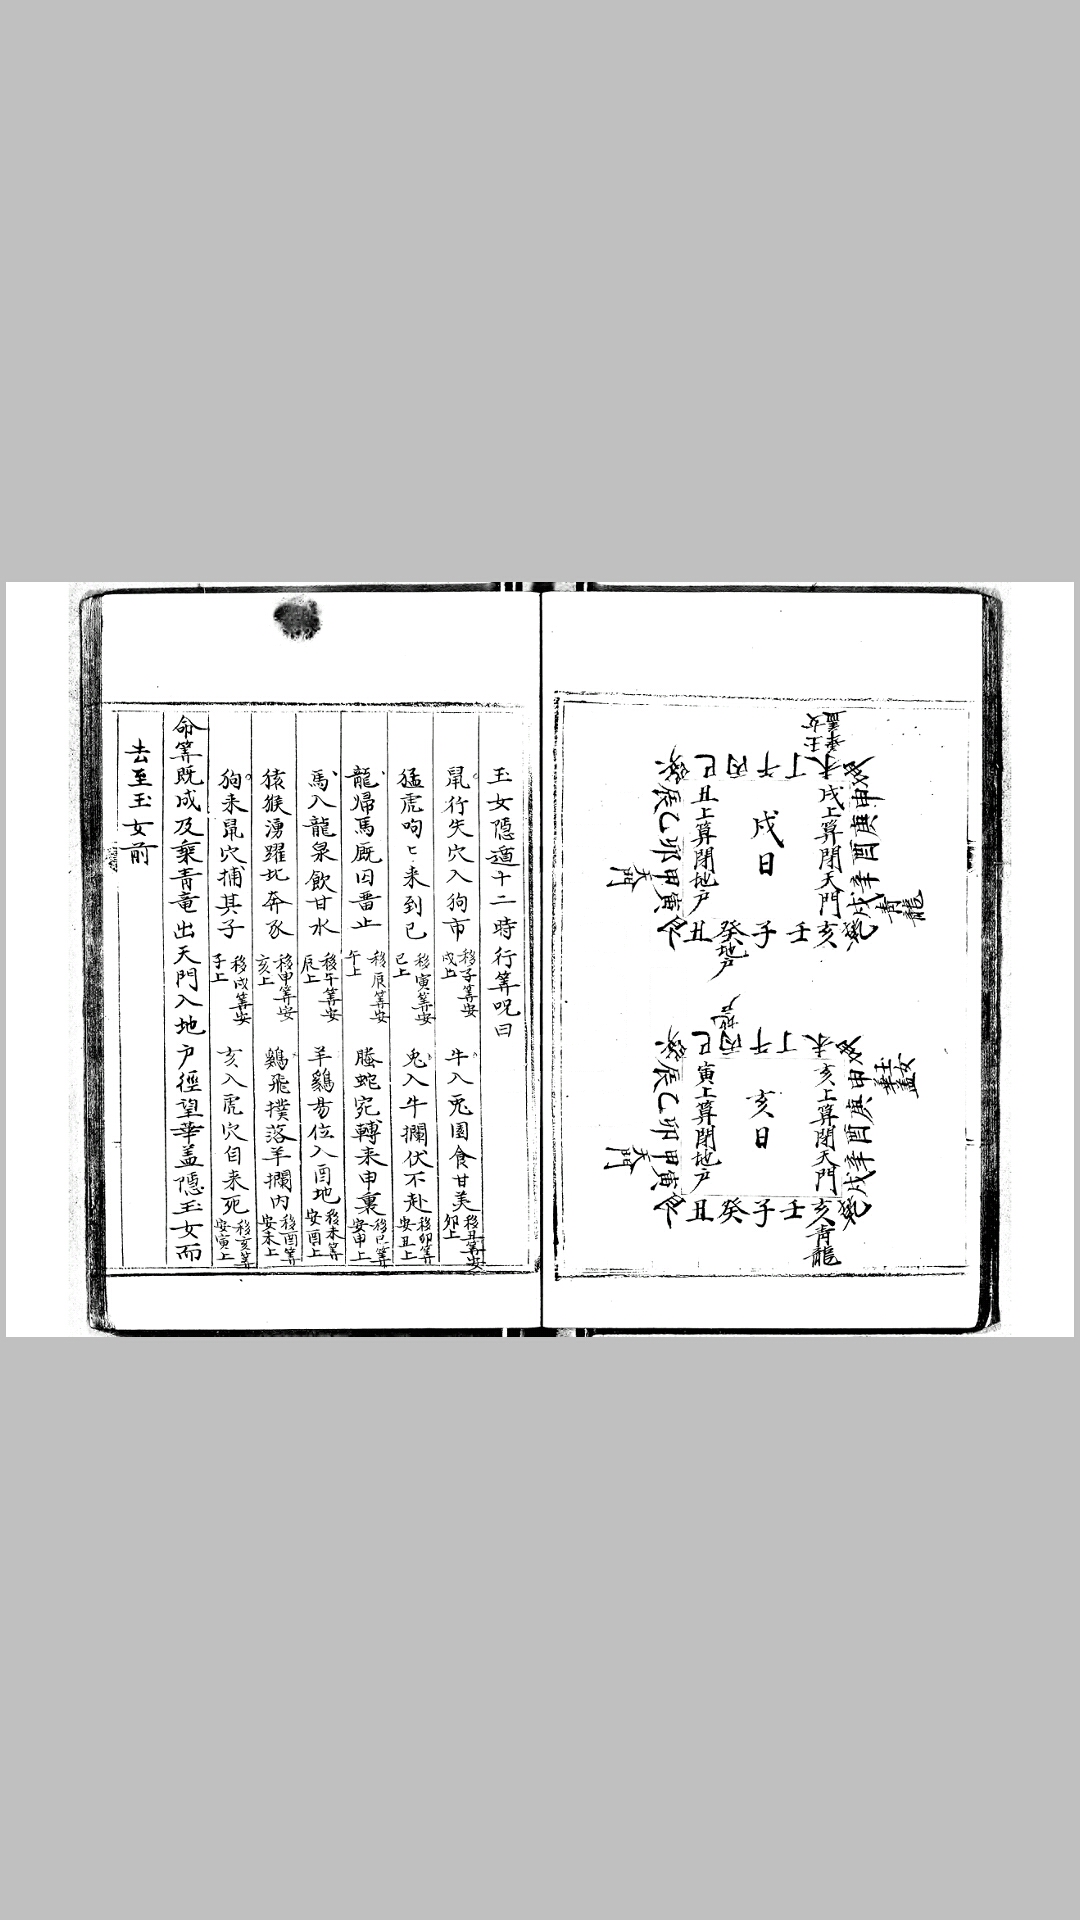 華蓋
玉女
巽巳丙午丁未坤
戌上算閉天門
戌日
丑上算閉地户
申庚酉辛戌
辰乙卯甲寅
青龍
天門
艮丑癸子壬亥乾
地户
地户
巽巳丙午丁未坤
玉女
華蓋
亥上算閉天門
亥日
寅上算閉地户
申庚酉辛戌
辰乙卯甲寅
天門
艮丑癸子壬亥乾
青龍
玉女隱遁十二時行筭呪曰
鼠行失穴入狗市 移子筭安戌上 牛入兎園食甘美 移丑筭安卯上
猛虎呴〻来到巳 移寅筭安巳上 兎入牛欄伏不赴 移卯筭安丑上
龍歸馬厩因畱止 移辰筭安午上 螣蛇宛轉来申裏 移巳筭安申上
馬入龍泉飲甘水 移午筭安辰上 羊鷄易位入酉地 移未筭安酉上
猿猴湧躍北奔豕 移申筭安亥上 鷄飛撲落羊欄内 移酉筭安未上
狗来鼠穴捕其子 移戌筭安子上 亥入虎穴自来死 移亥筭安寅上
命筭既成及乗青竜出天門入地户徑望華盖隱玉女而
去至玉女前